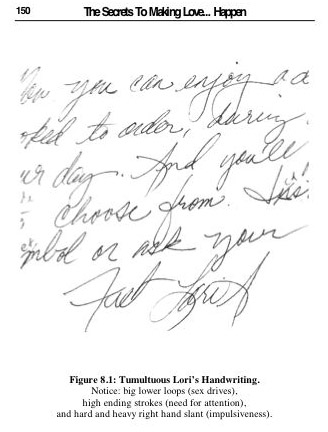 150 The Secrets To Making Love... Happen
you can enjoy a
to order, during
day. And you'll
choose from.
or ask your
Fast Lori
Figure 8.1: Tumultuous Lori's Handwriting.
Notice: big lower loops (sex drives),
high ending strokes (need for attention),
and hard and heavy right hand slant (impulsiveness).